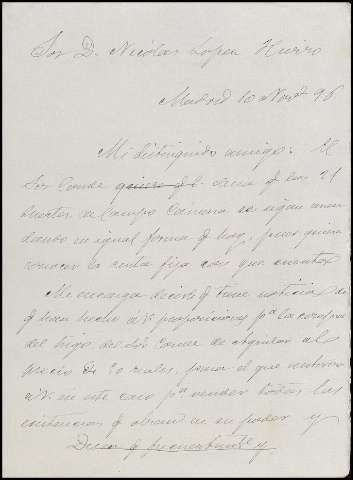 Sor D. Nicolas Lopez
Madrid 10 Novbe 96
Mi distinguido amigo: El
Sor Conde quiere q. l. desea q las 21
huertas de Campo Cámara se sigan arren
dando en igual forma q hoy, pues quiere
conocer la renta fija con que cuenta
Me encarga decirle q tiene noticias de
q han hecho a V. proposiciones pa la compra
del trigo del Sor Conde de Aguilar al
precio de reales, para el que autoriza
a V. en este caso pa vender todas las
existencias q obran en su poder y